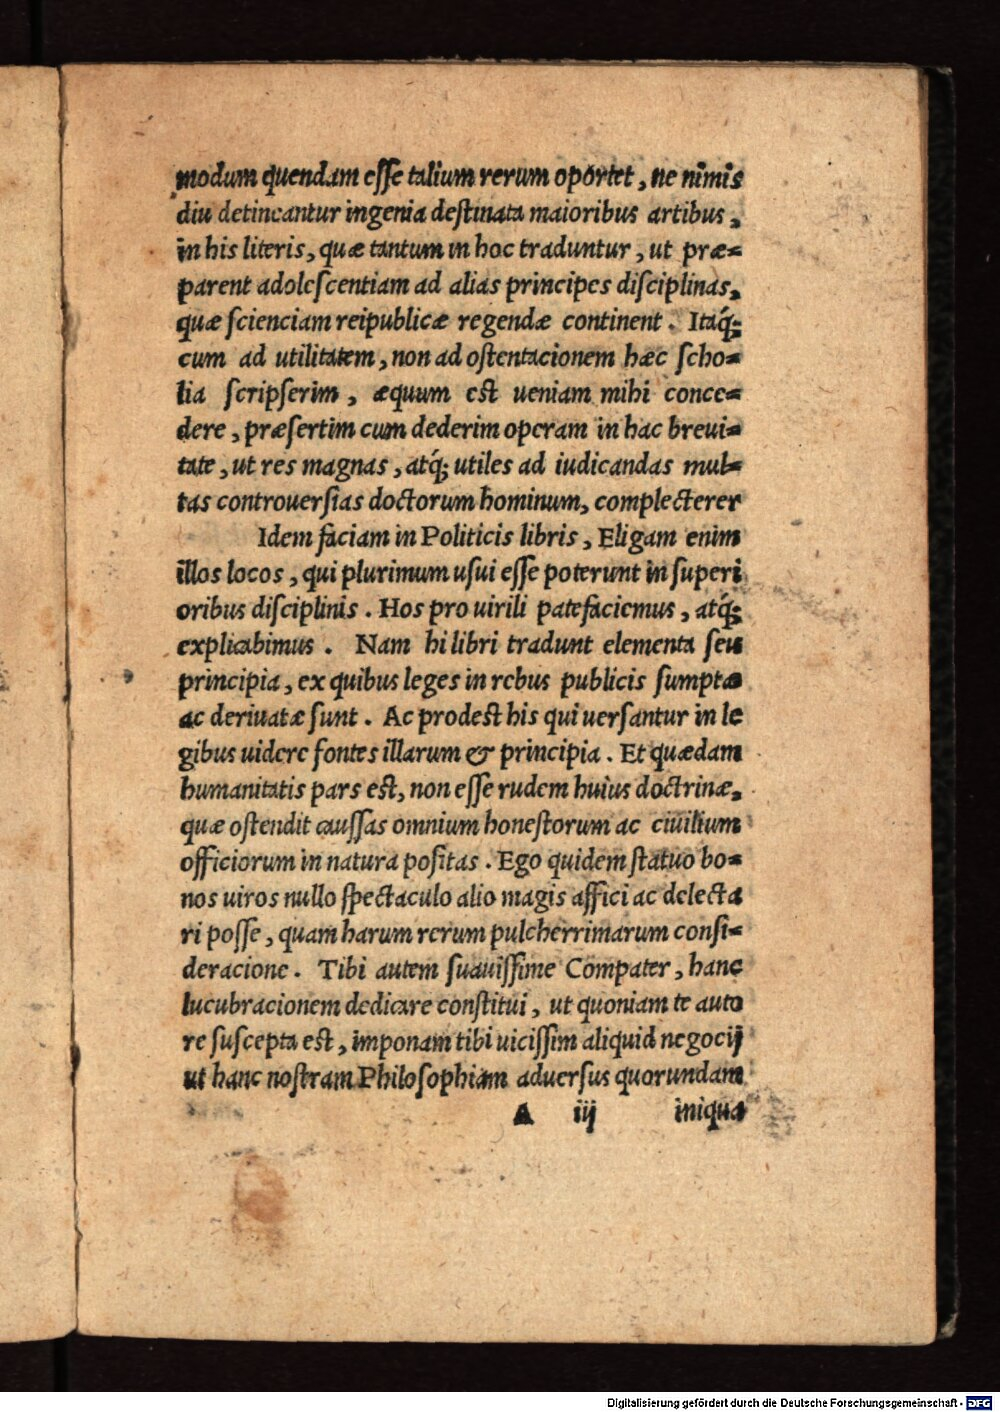 modum quendam eſſe talium rerum oportet, ne nimis
diu detineantur ingenia deſtinata maioribus artibus,
in his literis, quæ tantum in hoc traduntur, ut præ=
parent adoleſcentiam ad alias principes diſciplinas,
quæ ſcienciam reipublicæ regendæ continent. Itaq́;
cum ad utilitatem, non ad oſtentacionem hæc ſcho=
lia ſcripſerim, æquum eſt ueniam mihi conce=
dere, præſertim cum dederim operam in hac breui=
tate, ut res magnas, atq́; utiles ad iudicandas mul=
tas controuerſias doctorum hominum, complecterer
Idem faciam in Politicis libris, Eligam enim
illos locos, qui plurimum uſui eſſe poterunt in ſuperi
oribus diſciplinis. Hos pro uirili patefaciemus, atq́;
explicabimus. Nam hi libri tradunt elementa ſeu
principia, ex quibus leges in rebus publicis ſumptæ
ac deriuatæ ſunt. Ac prodeſt his qui uerſantur in le
gibus uidere fontes illarum & principia. Et quædam
humanitatis pars eſt, non eſſe rudem huius doctrinæ,
quæ oſtendit cauſſas omnium honeſtorum ac ciuilium
officiorum in natura poſitas. Ego quidem ſtatuo bo=
nos uiros nullo ſpectaculo alio magis affici ac delecta
ri poſſe, quam harum rerum pulcherrimarum conſi=
deracione. Tibi autem ſuauiſſime Compater, hanc
lucubracionem dedicare conſtitui, ut quoniam te auto
re ſuſcepta eſt, imponam tibi uiciſſim aliquid negocij
ut hanc noſtram Philoſophiam aduerſus quorundam
A iij iniqua
Digitalisierung gefördert durch die Deutsche Forschungsgemeinschaft - DFG